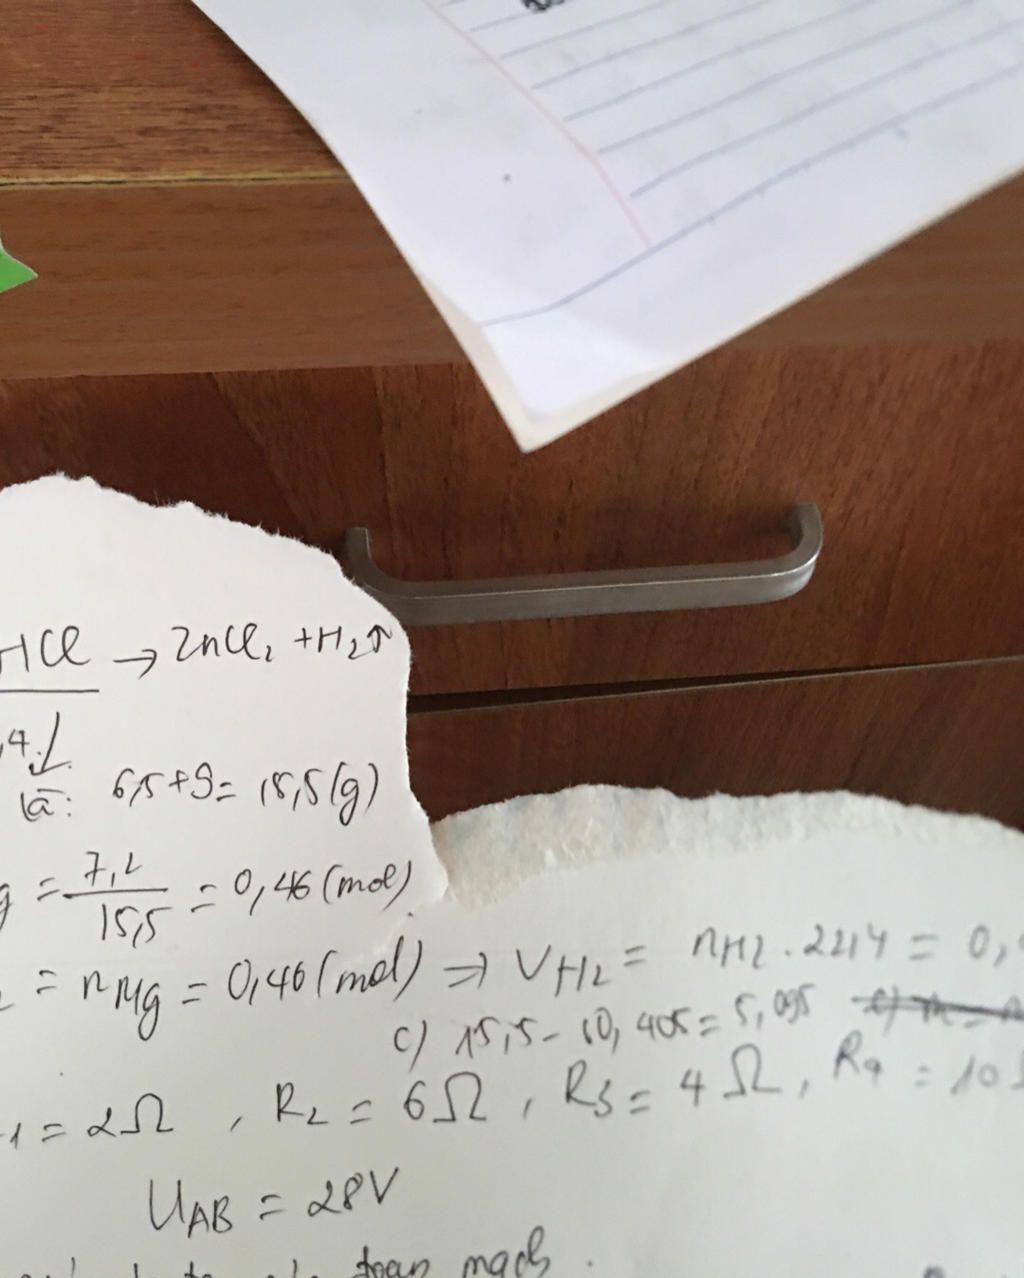 HCl → ZnCl₂ + H₂↑
,4
là: 6,5+9= 15,5(g)
g = 7,2/15,5 = 0,46 (mol)
₂ = nMg = 0,46 (mol) => VH₂ = nH₂ . 22,4 = 0,
c) 15,5 - 10,405 = 5,095
1 = 2Ω , R₂ = 6Ω , R₃ = 4Ω, R₄ = 10Ω
UAB = 28V
toàn mạch.